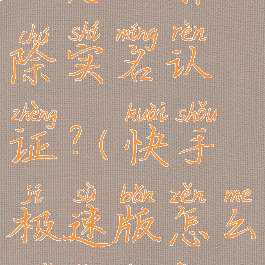 chú shí míng rèn
除实名认
zhèng kuài shǒu
证?(快手
jí sù bǎn zěn me
极速版怎么